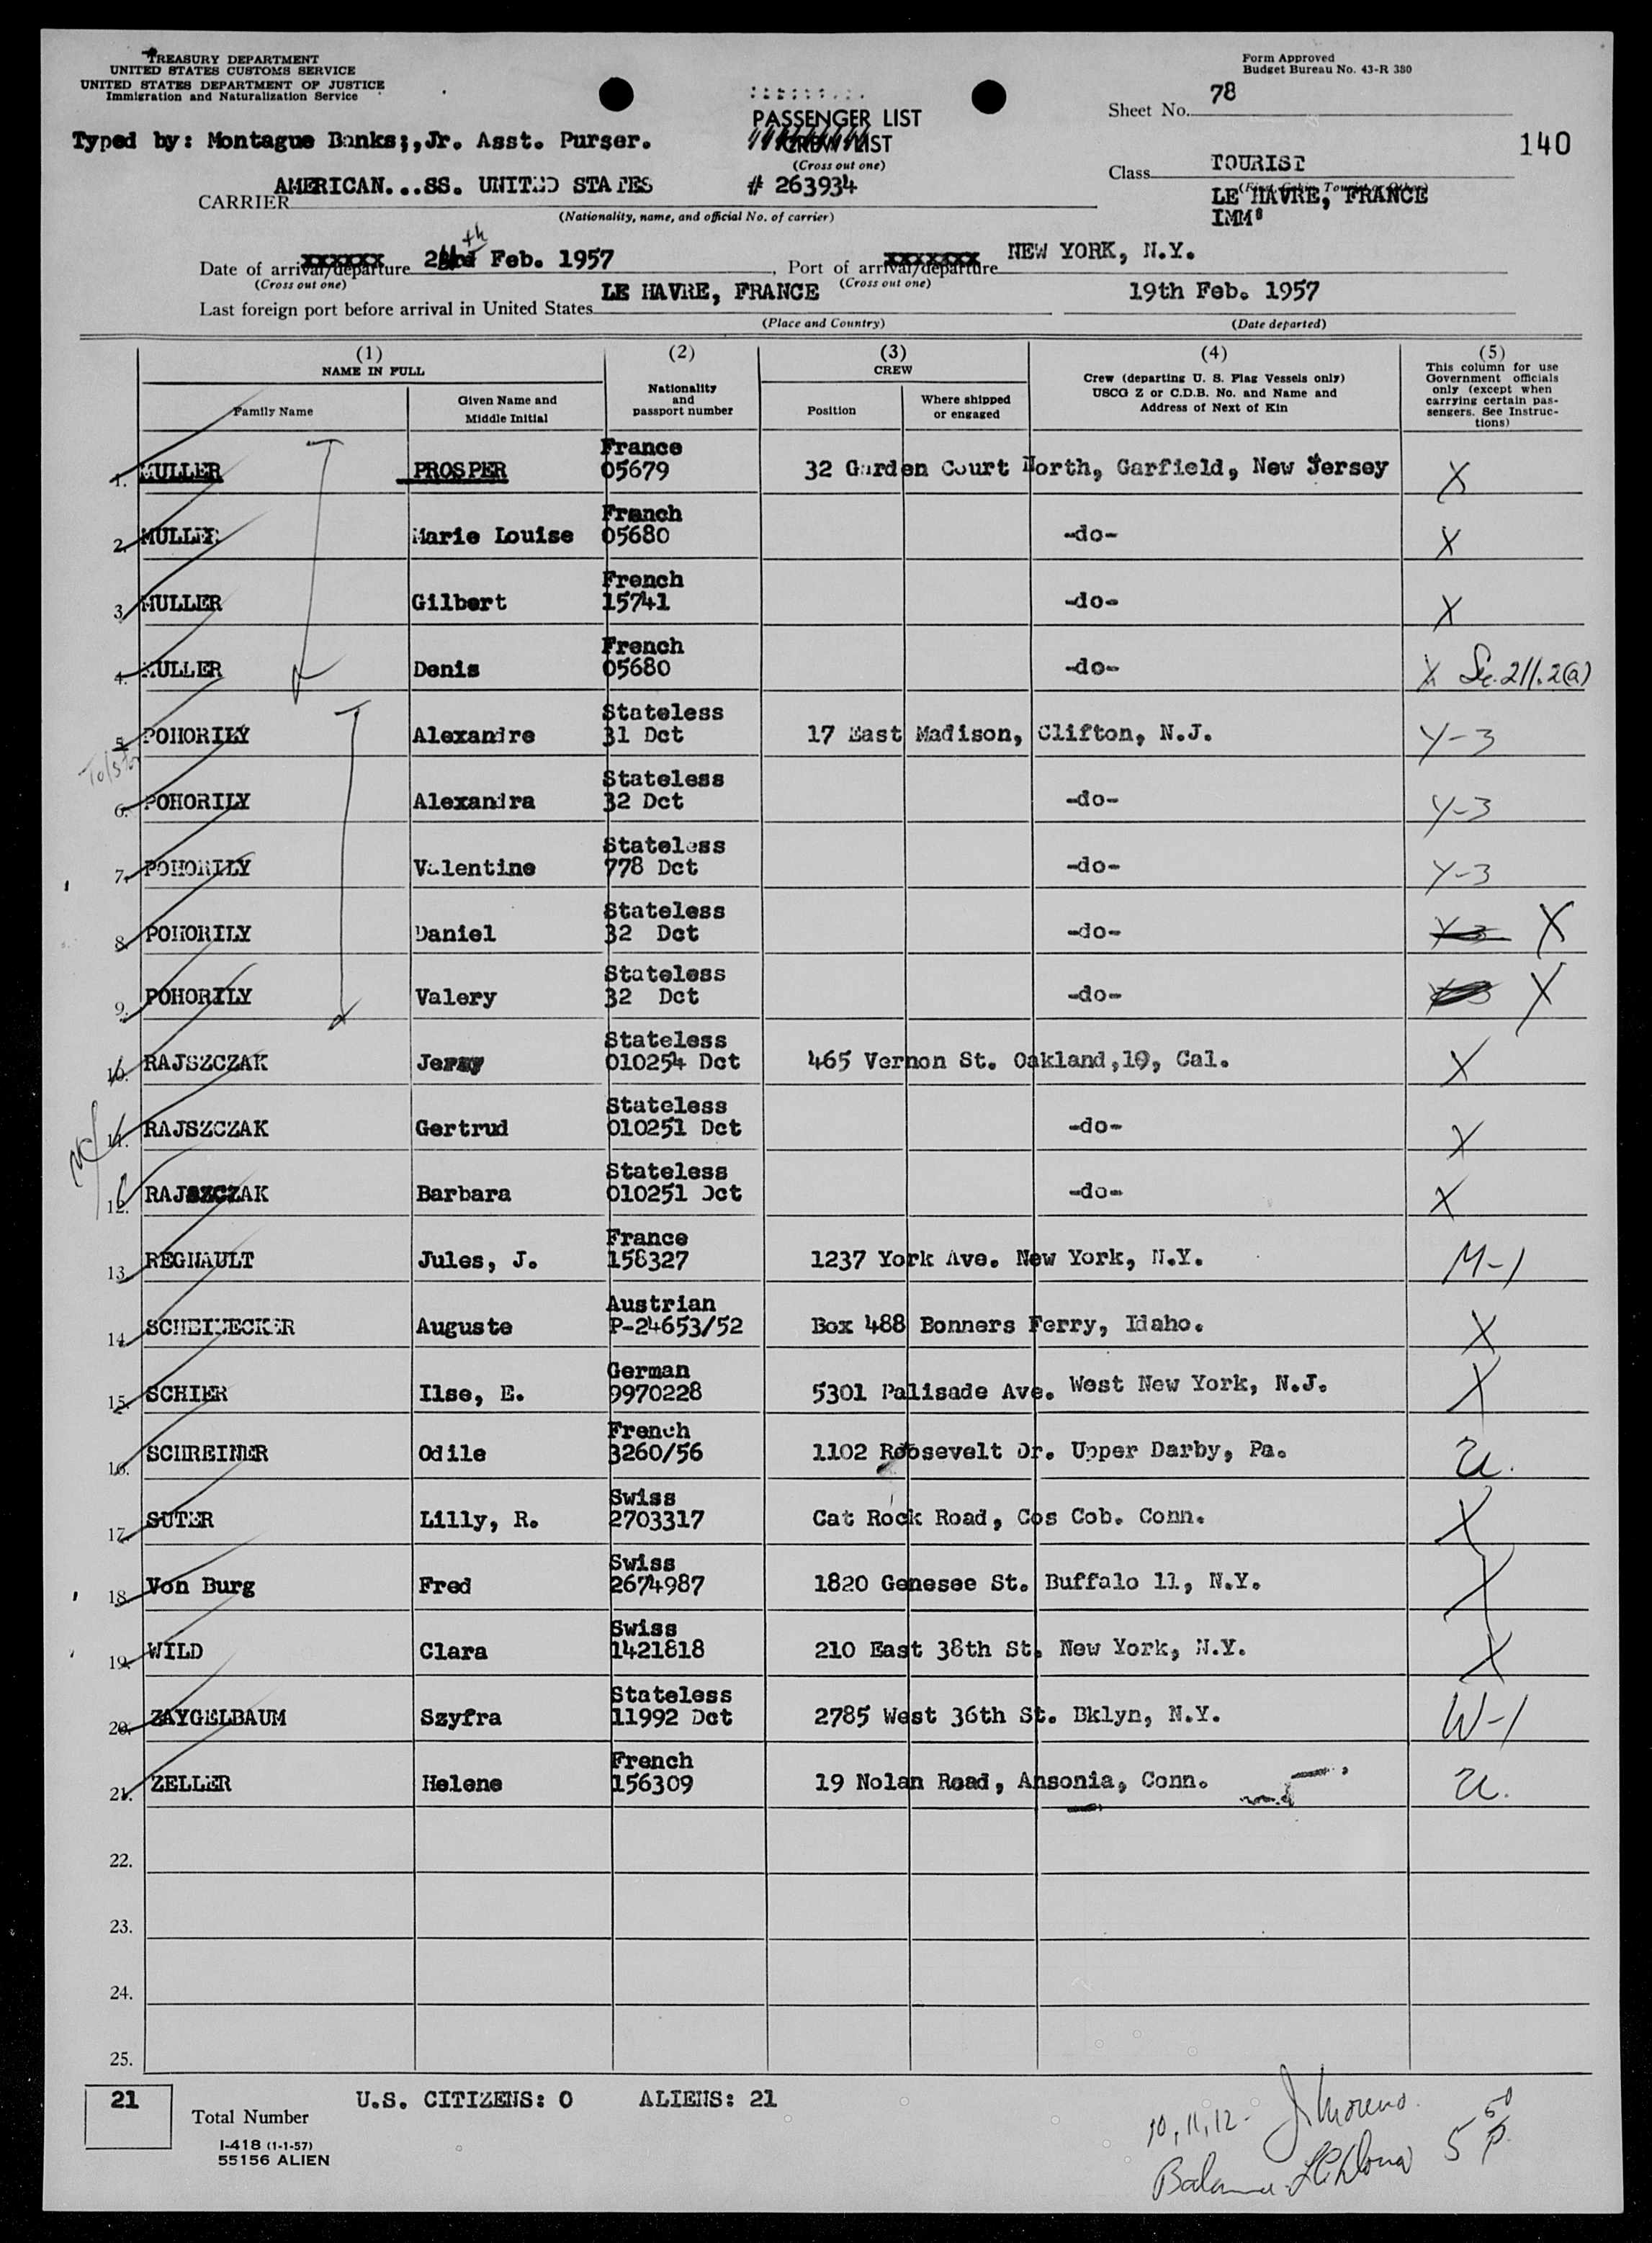 TREASURY DEPARTMENT
UNITED STATES CUSTOMS SERVICE
UNITED STATES DEPARTMENT OF JUSTICE
Immigration and Naturalization Service
Form Approved
Budget Bureau No. 43-R 380
PASSENGER LIST
CREW LIST
(Cross out one)
Sheet No. 78
140
Typed by: Montague Banks;,Jr. Asst. Purser.
Class TOURIST
CARRIER AMERICAN...SS. UNITED STATES # 263934
(Nationality, name, and official No. of carrier)
LE HAVRE, FRANCE
IMM8
Date of arrival/departure 24th Feb. 1957, Port of arrival/departure NEW YORK, N.Y.
(Cross out one) (Cross out one)
Last foreign port before arrival in United States LE HAVRE, FRANCE 19th Feb. 1957
(Place and Country) (Date departed)
(1) (2) (3) (4) (5)
NAME IN FULL
Family Name
Given Name and Middle Initial
Nationality and passport number
CREW
Position
Where shipped or engaged
Crew (departing U. S. Flag Vessels only)
USCG Z or C.D.B. No. and Name and
Address of Next of Kin
This column for use
Government officials
only (except when
carrying certain pas-
sengers. See Instruc-
tions)
France
1. MULLER PROSPER 05679 32 Garden Court North, Garfield, New Jersey X
French
2. MULLER Marie Louise 05680 -do- X
French
3. MULLER Gilbert 15741 -do- X
French
4. MULLER Denis 05680 -do- X Sec. 211.2(a)
Stateless
5. POHORILY Alexandre 31 Dct 17 East Madison, Clifton, N.J. Y-3
Stateless
6. POHORILY Alexandra 32 Dct -do- Y-3
Stateless
7. POHORILY Valentine 778 Dct -do- Y-3
Stateless
8. POHORILY Daniel 32 Dct -do- Y-3 X
Stateless
9. POHORILY Valery 32 Dct -do- X
Stateless
10. RAJSZCZAK Jerzy 010254 Dct 465 Vernon St. Oakland,10, Cal. X
Stateless
11. RAJSZCZAK Gertrud 010251 Dct -do- X
Stateless
12. RAJSZCZAK Barbara 010251 Dct -do- X
France
13. REGNAULT Jules, J. 158327 1237 York Ave. New York, N.Y. M-1
Austrian
14. Auguste P-24653/52 Box 488 Bonners Ferry, Idaho. X
German
15. SCHIER Ilse, E. 9970228 5301 Palisade Ave. West New York, N.J. X
French
16. SCHREINER Odile 3260/56 1102 Roosevelt Dr. Upper Darby, Pa. U.
Swiss
17. SUTER Lilly, R. 2703317 Cat Rock Road, Cos Cob. Conn. X
Swiss
18. Von Burg Fred 2674987 1820 Genesee St. Buffalo 11, N.Y. X
Swiss
19. WILD Clara 1421818 210 East 38th St. New York, N.Y. X
Stateless
20. ZAYGELBAUM Szyfra 11992 Dct 2785 West 36th St. Bklyn, N.Y. W-1
French
21. ZELLER Helene 156309 19 Nolan Road, Ansonia, Conn. U.
22.
23.
24.
25.
21 Total Number U.S. CITIZENS: 0 ALIENS: 21
I-418 (1-1-57)
55156 ALIEN
10, 11, 12- J Moreno.